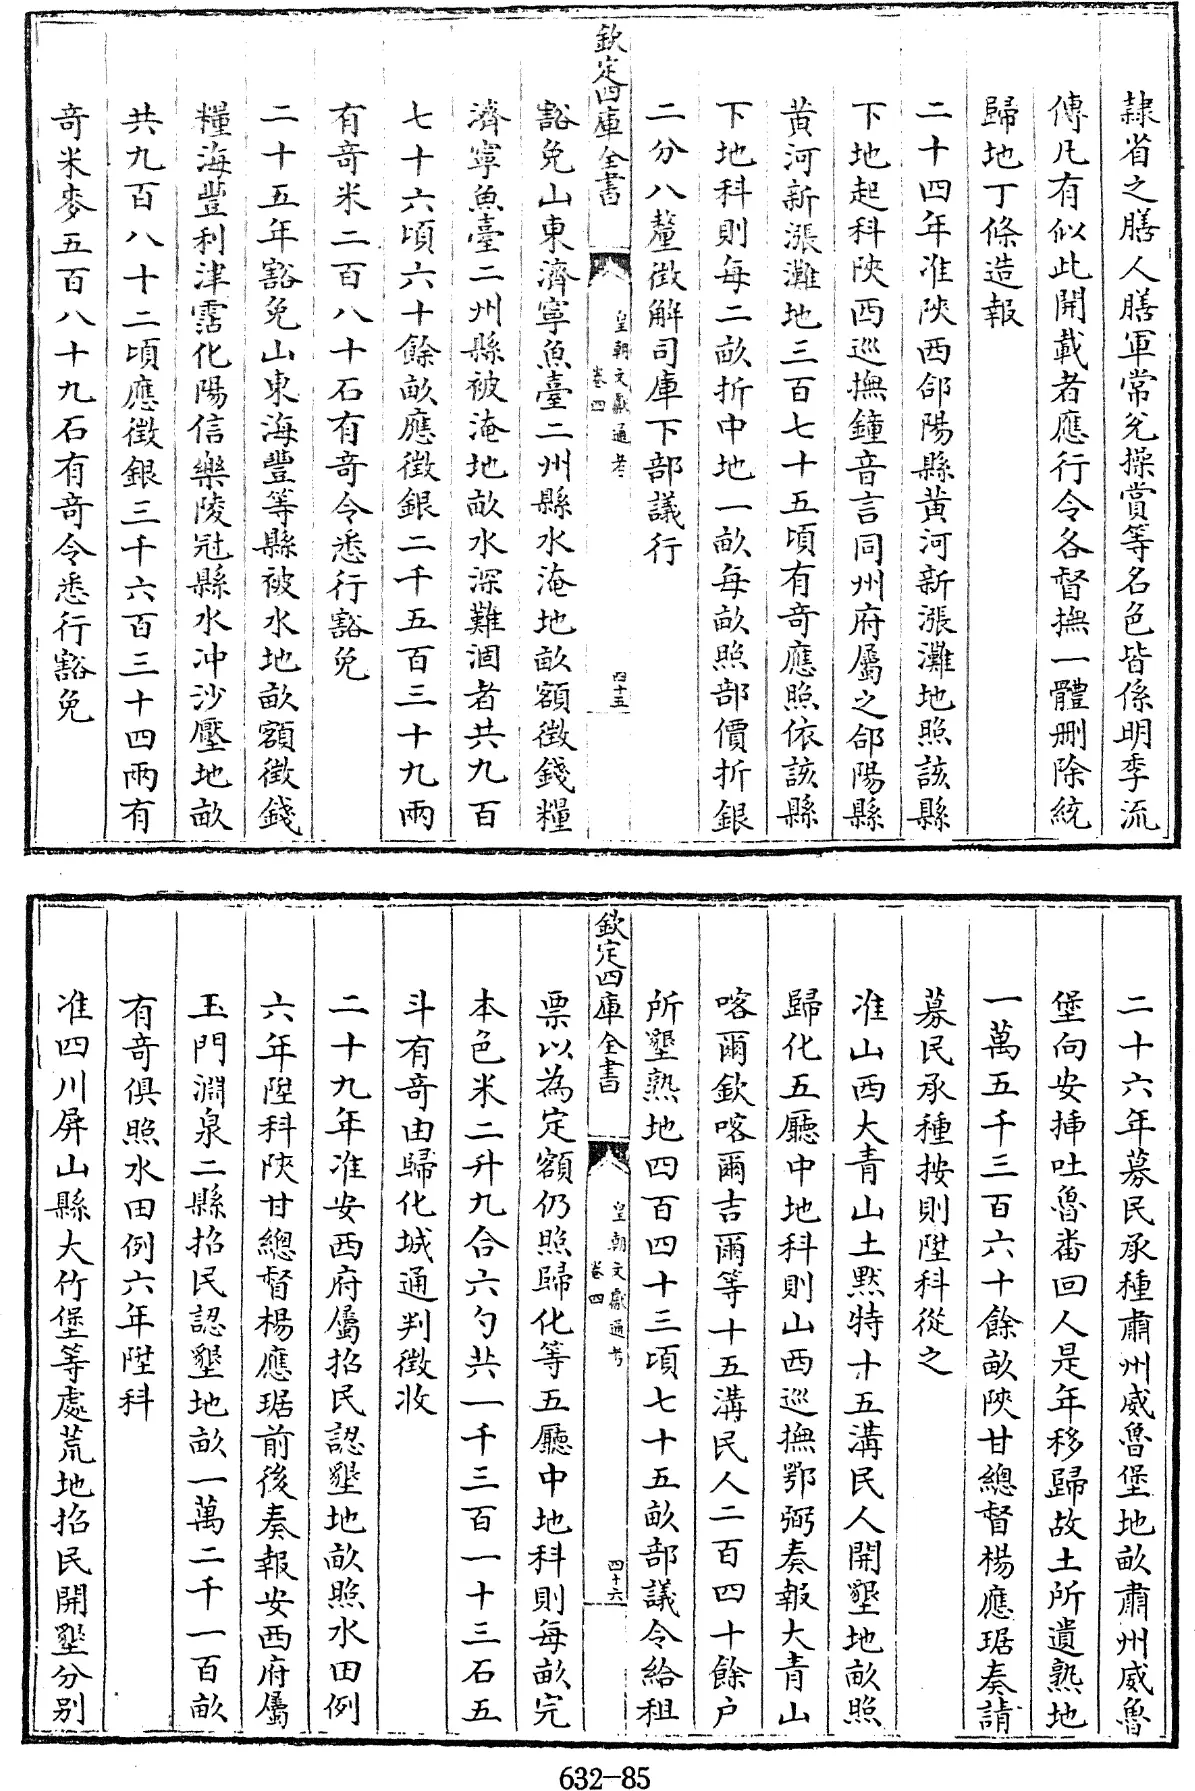 隸省之膳人膳軍常兌操賞等名色皆係明季流
傳凡有似此開載者應行令各督撫一體刪除統
歸地丁條造報
二十四年准陝西郃陽縣黃河新漲灘地照該縣
下地起科陝西巡撫鐘音言同州府屬之郃陽縣
黃河新漲灘地三百七十五頃有奇應照依該縣
下地科則每二畝折中地一畝每畝照部價折銀
二分八釐徵解司庫下部議行
欽定四庫全書
皇朝文獻通考
卷四
四十五
豁免山東濟寧魚臺二州縣水淹地畝額徵錢糧
濟寧魚臺二州縣被淹地畝水深難涸者共九百
七十六頃六十餘畝應徵銀二千五百三十九兩
有奇米二百八十石有奇令悉行豁免
二十五年豁免山東海豐等縣被水地畝額徵錢
糧海豐利津霑化陽信樂陵冠縣水冲沙壓地畝
共九百八十二頃應徵銀三千六百三十四兩有
奇米麥五百八十九石有奇令悉行豁免
二十六年募民承種肅州威魯堡地畝肅州威魯
堡向安揷吐魯番回人是年移歸故土所遺熟地
一萬五千三百六十餘畝陝甘總督楊應琚奏請
募民承種按則陞科從之
准山西大青山土默特十五溝民人開墾地畝照
歸化五廳中地科則山西巡撫鄂弼奏報大青山
喀爾欽喀爾吉爾等十五溝民人二百四十餘户
所墾熟地四百四十三頃七十五畝部議令給租
欽定四庫全書
皇朝文獻通考
卷四
四十六
票以為定額仍照歸化等五廳中地科則每畝完
本色米二升九合六勺共一千三百一十三石五
斗有奇由歸化城通判徵收
二十九年准安西府屬招民認墾地畝照水田例
六年陞科陝甘總督楊應琚前後奏報安西府屬
玉門淵泉二縣招民認墾地畝一萬二千一百畝
有奇俱照水田例六年陞科
准四川屏山縣大竹堡等處荒地招民開墾分别
632-85